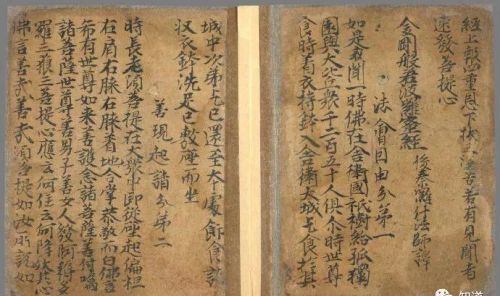 經上報重恩下苦若有見聞者
速發菩提心
金剛般若波羅蜜經
後秦羅什法師譯
法會因由分第一
如是我聞一時佛在舍衛國祇樹給孤獨
園與大眾千二百五十人俱尒時世尊
食時着衣持鉢入舍衛大城乞食於其
城中次第乞已還至本處飯食訖
収衣鉢洗足已敷座而坐
善現起請分第二
時長老須菩提在大眾中即從座起偏袒
右肩右膝右膝者地合掌恭敬而白佛言
希有世尊如来善護念諸菩薩善付囑
諸菩薩世尊善男子善女人發阿耨多
羅三藐三菩提心應云何住云何降伏其心
佛言善哉善哉須菩提如汝所說如
知道